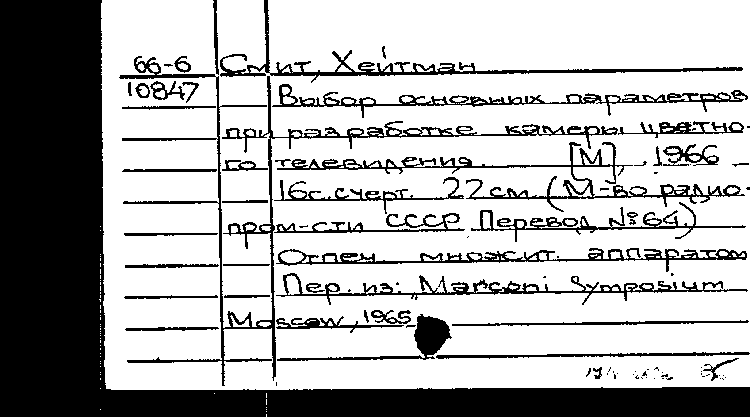 66-6 Смит, Хейтман
10847 Выбор основных параметров
при разработке камеры цветно-
го телевидения. [М], 1966
16с. с черт. 27 см. (М-во радио-
пром-сти СССР. Перевод № 64.)
Отпеч. множит. аппаратом
Пер. из: "Marconi Symposium
Moscow, 1965.